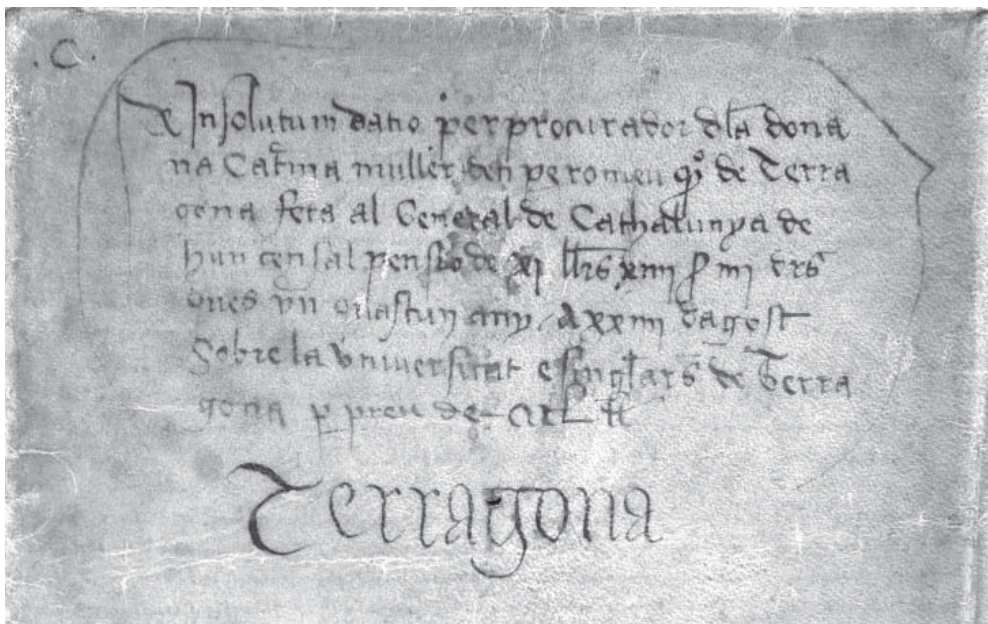 .C.
Insolutum datio per procurador dla dona
na Catina muller den peromeu de Terra
gona feta al General de Cathalunya de
hun censal pensio de xi llrs xiiii
quascun any A xxiiii dagost
Sobre la Universitat e singlars de Terra
gona per preu de
Terragona